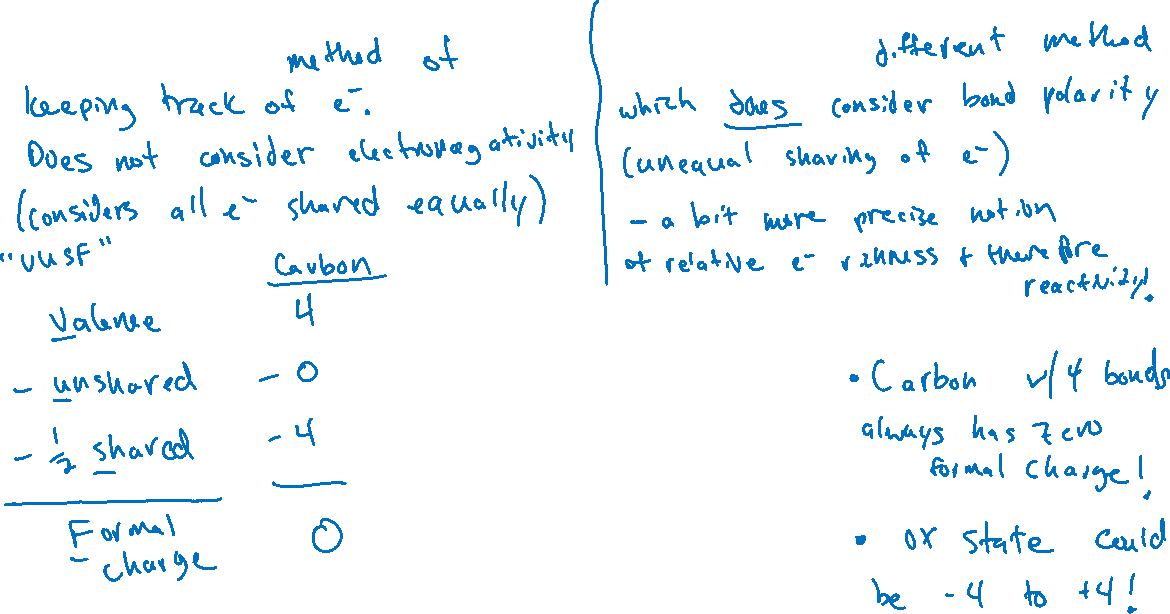 method of
keeping track of e⁻.
Does not consider electronegativity
(considers all e⁻ shared equally)
"VUSF"
Carbon
Valence 4
- unshared - 0
- ½ shared - 4
Formal charge 0
different method
which does consider bond polarity
(unequal sharing of e⁻)
- a bit more precise notion
of relative e⁻ richness + therefore
reactivity!
• Carbon w/ 4 bonds
always has zero
formal charge!
• ox state could
be -4 to +4!